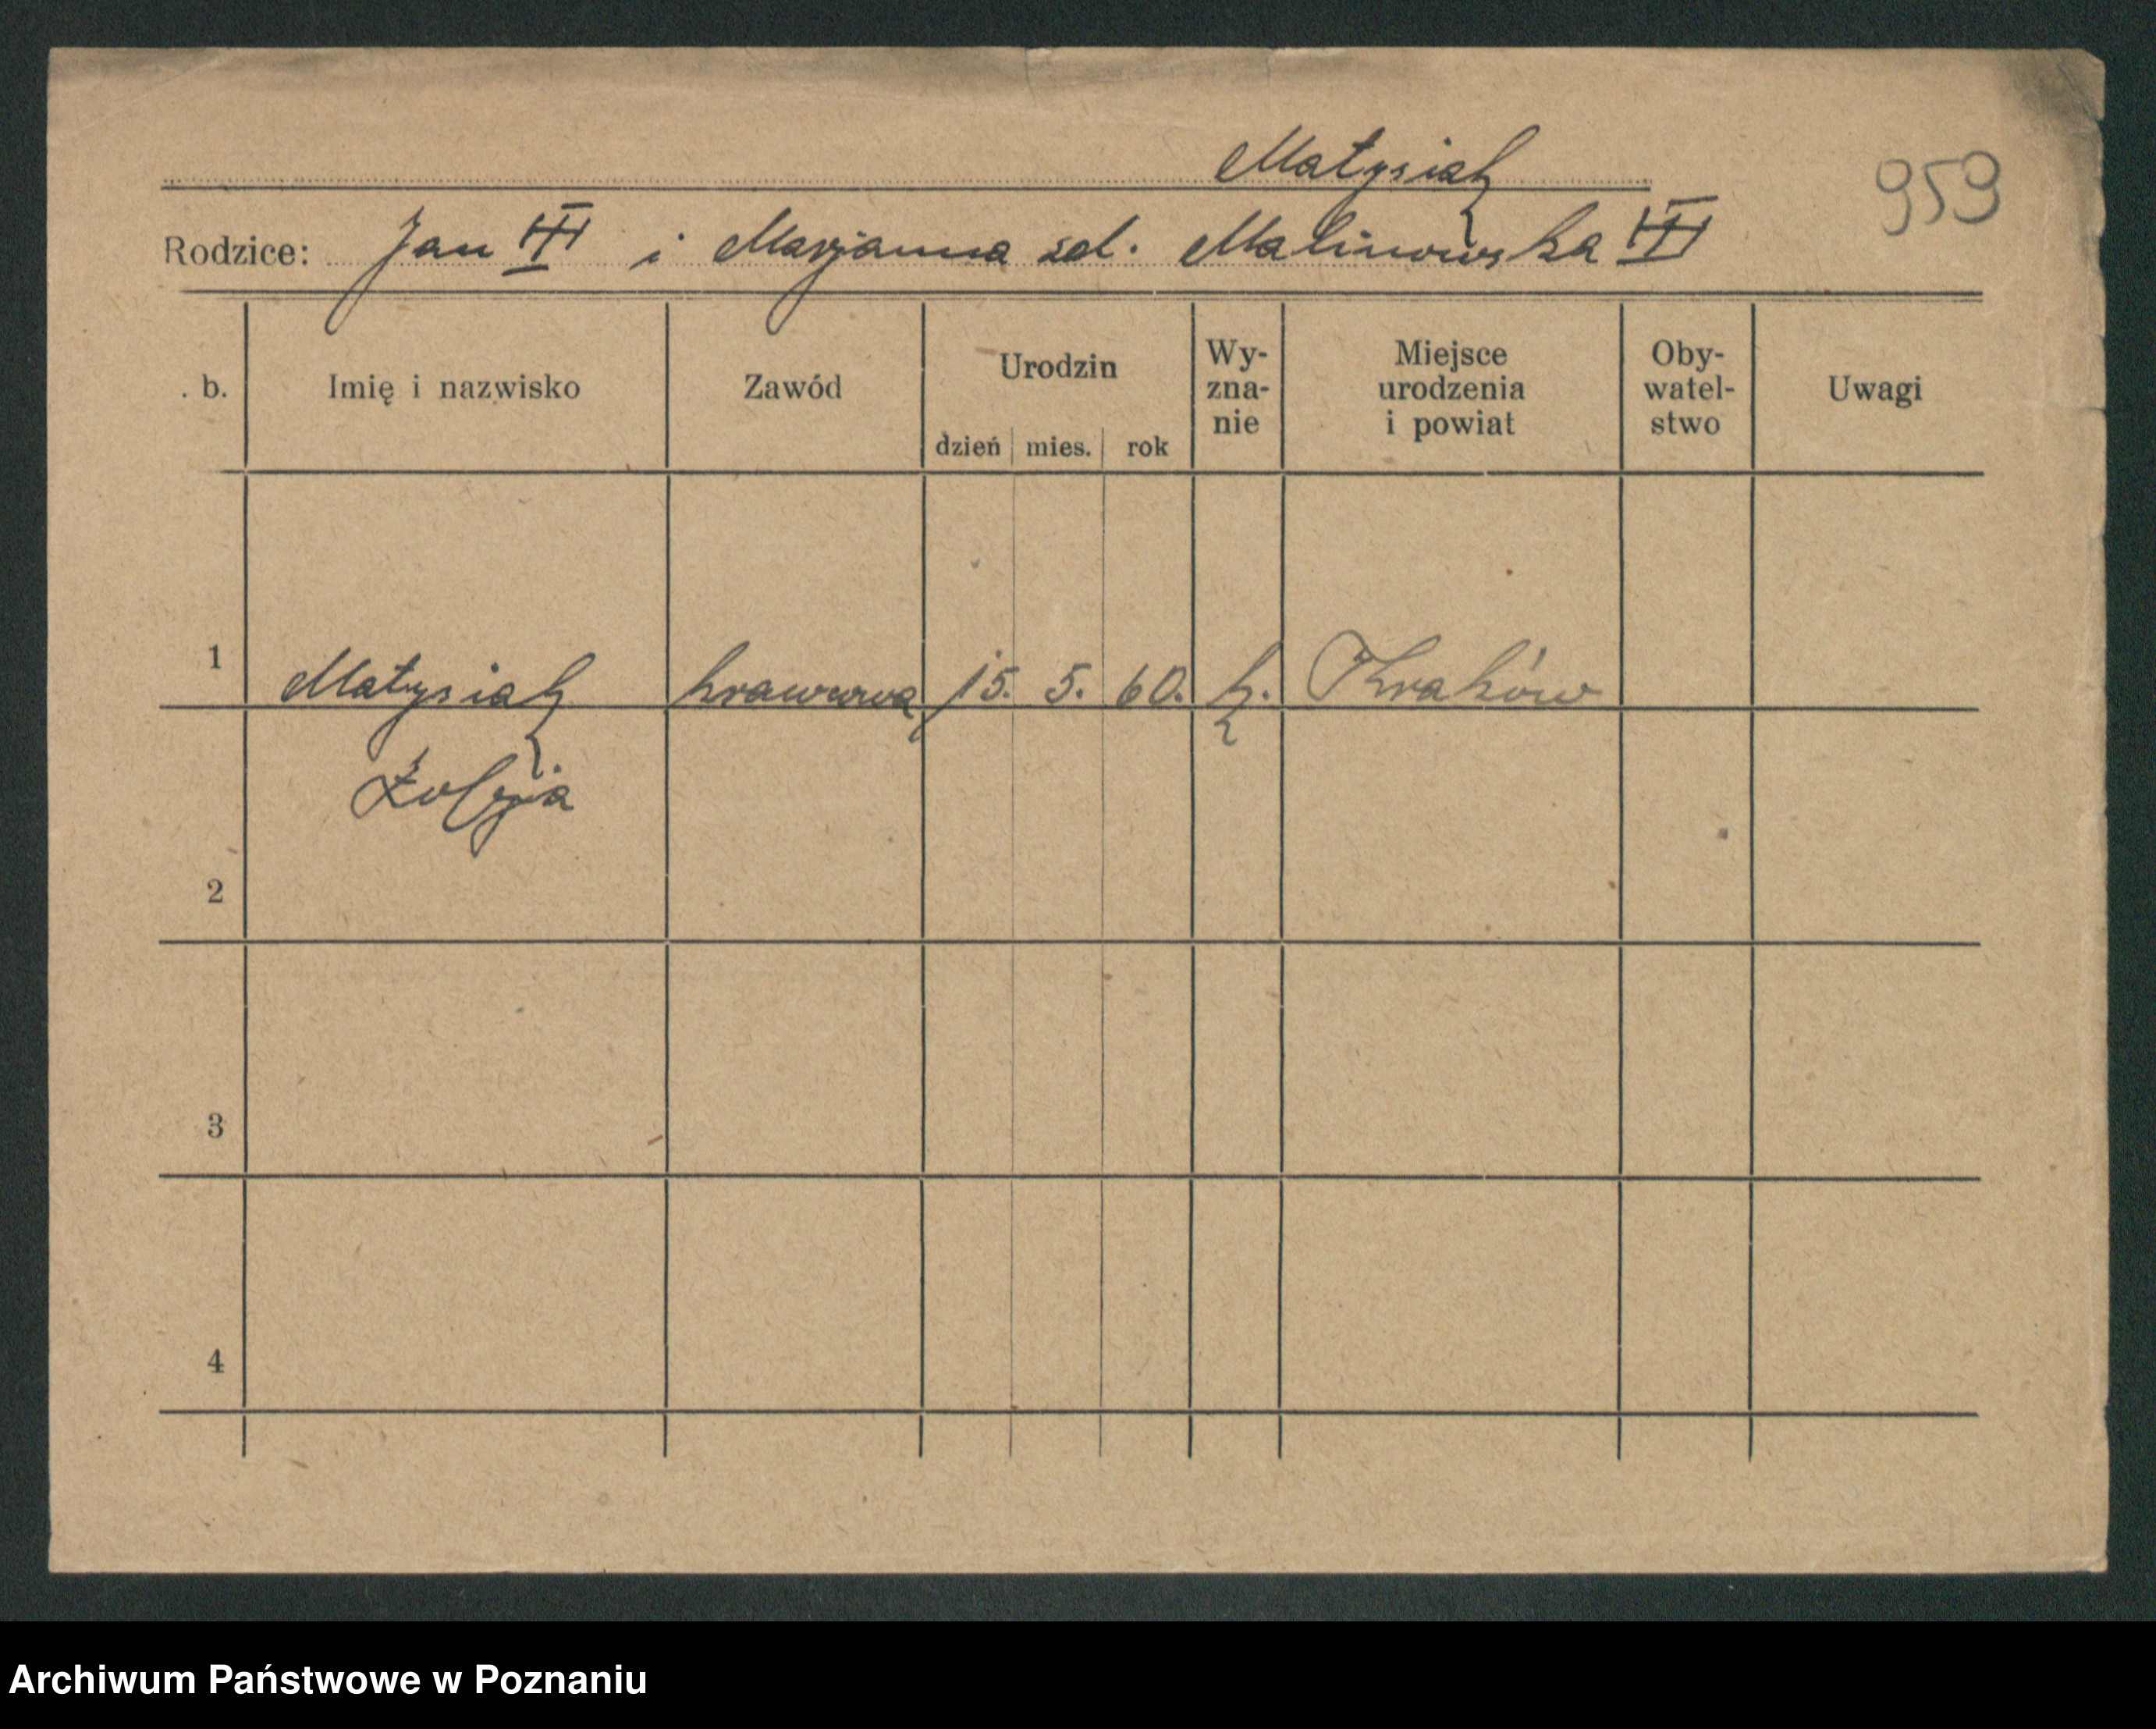 Matysiak
959
Rodzice: Jan III i Marjanna zd. Malinowska III
. b. Imię i nazwisko Zawód Urodzin dzień mies. rok Wy-zna-nie Miejsce urodzenia i powiat Oby-watel-stwo Uwagi
1 Matysiak krawcowa 15. 5. 60. k. Kraków
Zofja
2
3
4
Archiwum Państwowe w Poznaniu